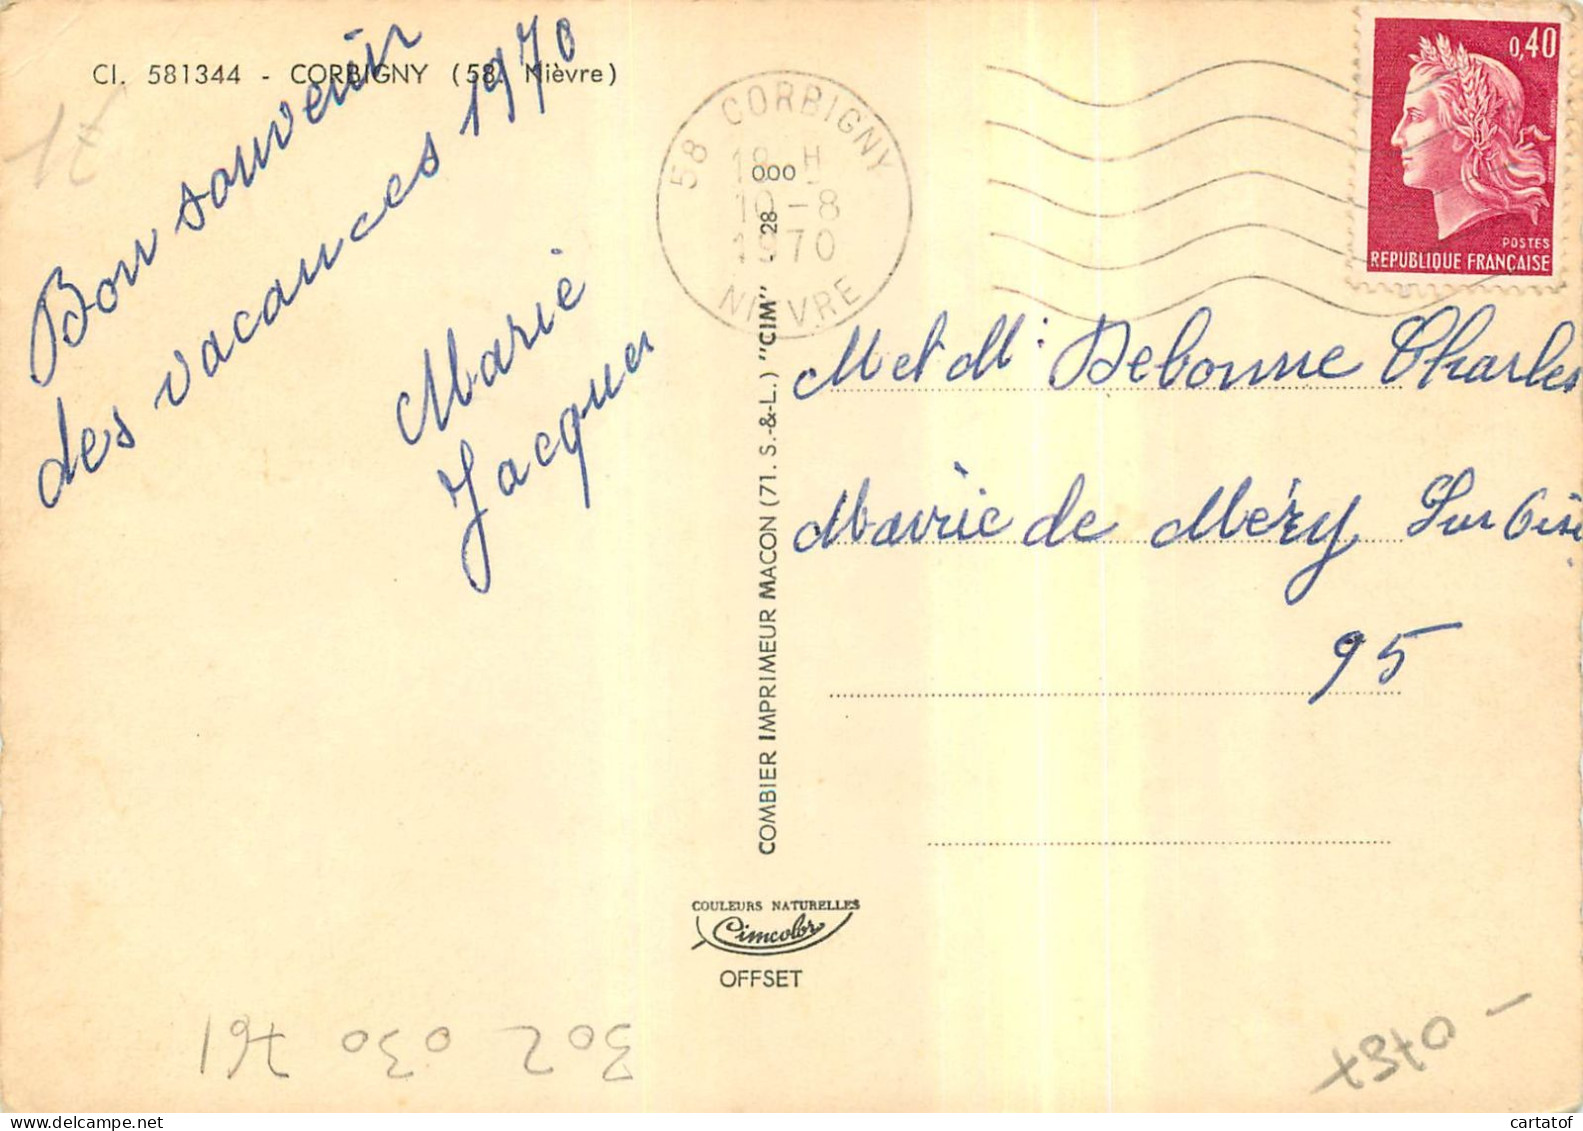 Cl. 581344 - CORBIGNY (58. Nièvre)
1€
Bon souvenir
des vacances 1970
Marie
Jacques
58 CORBIGNY
18 H
10-8
1970
NIEVRE
000
28
0,40
POSTES
REPUBLIQUE FRANÇAISE
M et Mr Debonne Charles
Mairie de Méry Sur Oise
95
COMBIER IMPRIMEUR MACON (71. S.-&-L.) "CIM"
COULEURS NATURELLES
Cimcolor
OFFSET
302 030 761
cartatof